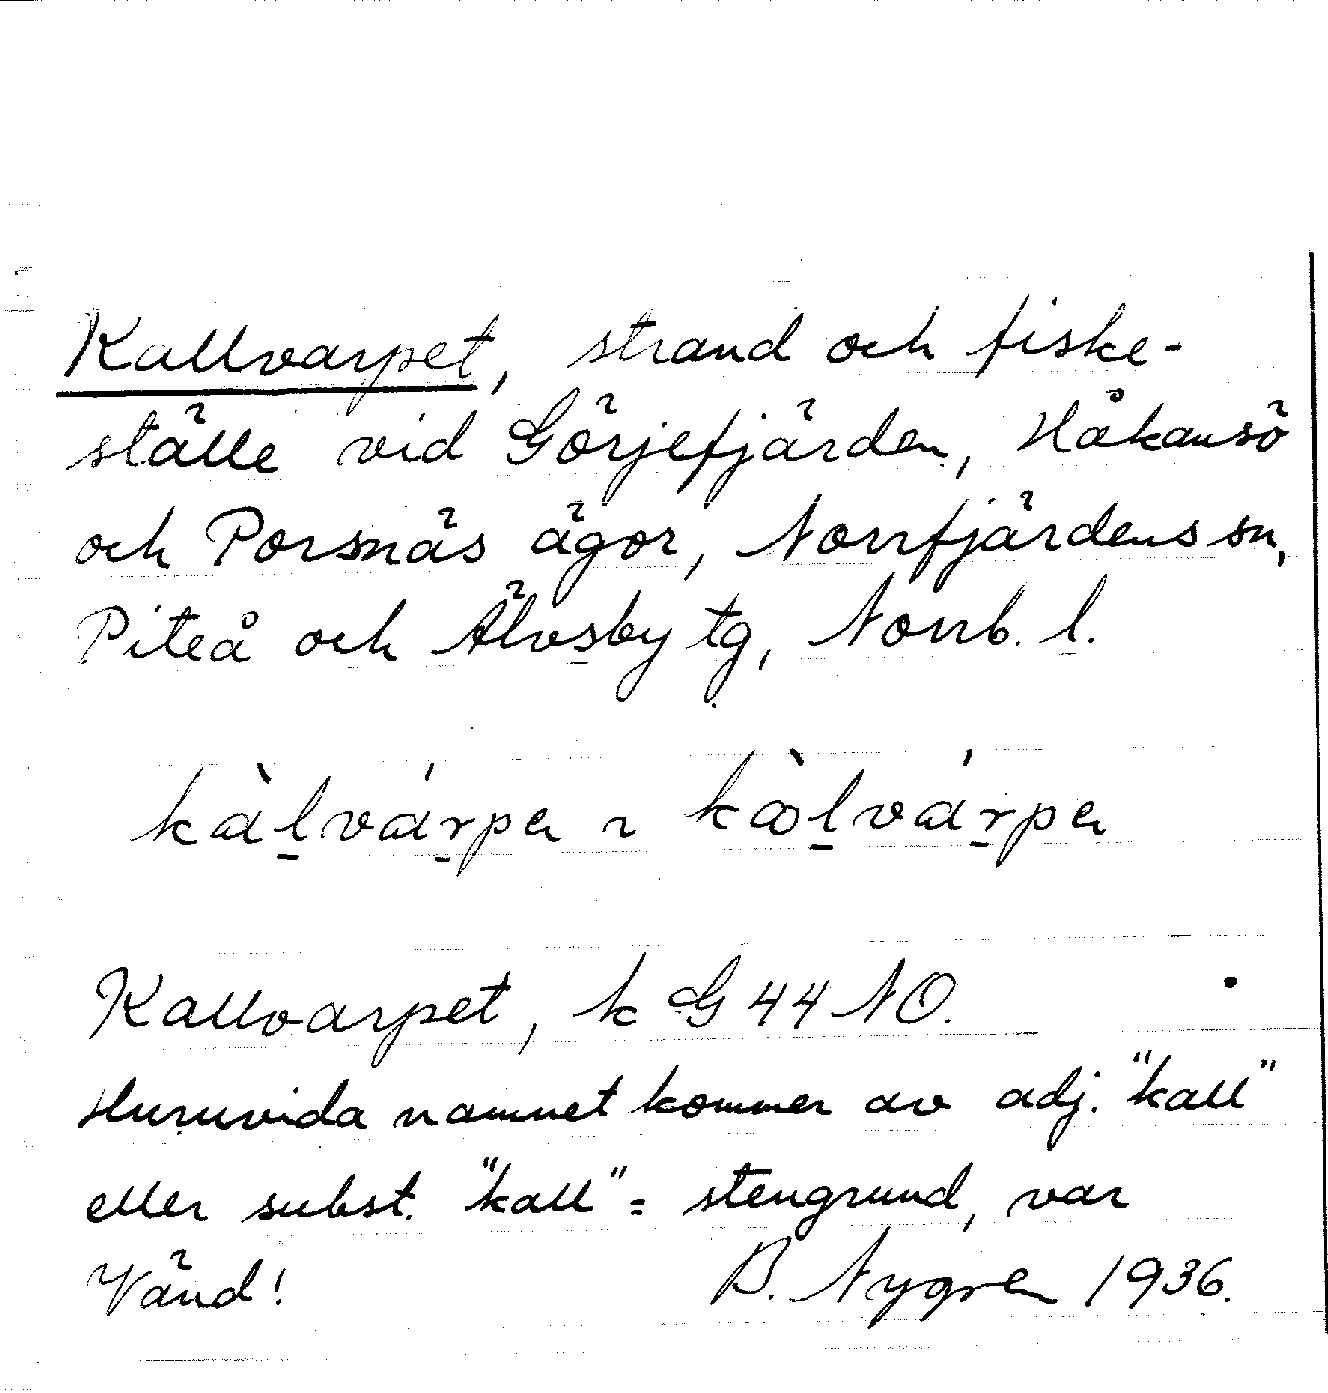 Kallvarpet, strand och fiske-
ställe vid Görjefjärden, Håkansö
och Porsnäs ägor, Norrfjärdens sn,
Piteå och Älvsby tg, Norrb. l.
kàl̠vár̠pɐ ~ kòl̠vár̠pɐ
Kallvarpet, k G 44 NO.
Huruvida namnet kommer av adj. "kall"
eller subst. "kall" = stengrund, var
Vänd! B. Nygren 1936.